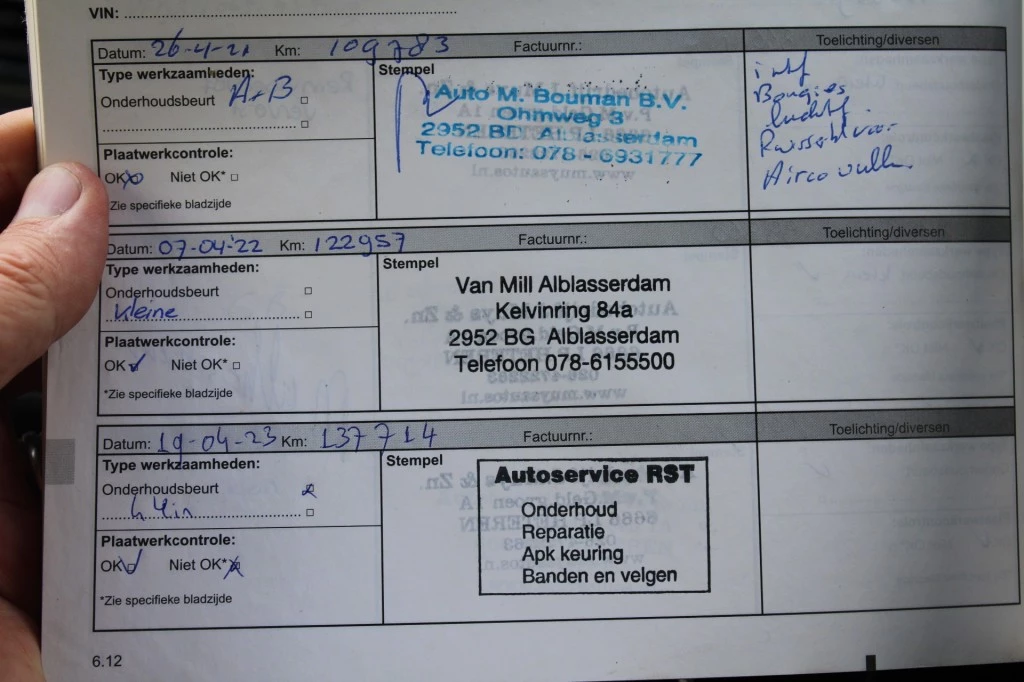 VIN:
Datum: 26-4-21 Km: 109783 Factuurnr.: Toelichting/diversen
Type werkzaamheden:
Onderhoudsbeurt A+B
Plaatwerkcontrole:
OK Niet OK*
*Zie specifieke bladzijde
Stempel
Auto M. Bouman B.V.
Ohmweg 3
2952 BD Alblasserdam
Telefoon: 078 - 6931777
Bougies
Airco
Datum: 07-04-'22 Km: 122957 Factuurnr.: Toelichting/diversen
Type werkzaamheden:
Onderhoudsbeurt
kleine
Plaatwerkcontrole:
OK Niet OK*
*Zie specifieke bladzijde
Stempel
Van Mill Alblasserdam
Kelvinring 84a
2952 BG Alblasserdam
Telefoon 078-6155500
Datum: 19-04-23 Km: 137714 Factuurnr.: Toelichting/diversen
Type werkzaamheden:
Onderhoudsbeurt
Plaatwerkcontrole:
OK Niet OK*
*Zie specifieke bladzijde
Stempel
Autoservice RST
Onderhoud
Reparatie
Apk keuring
Banden en velgen
6.12